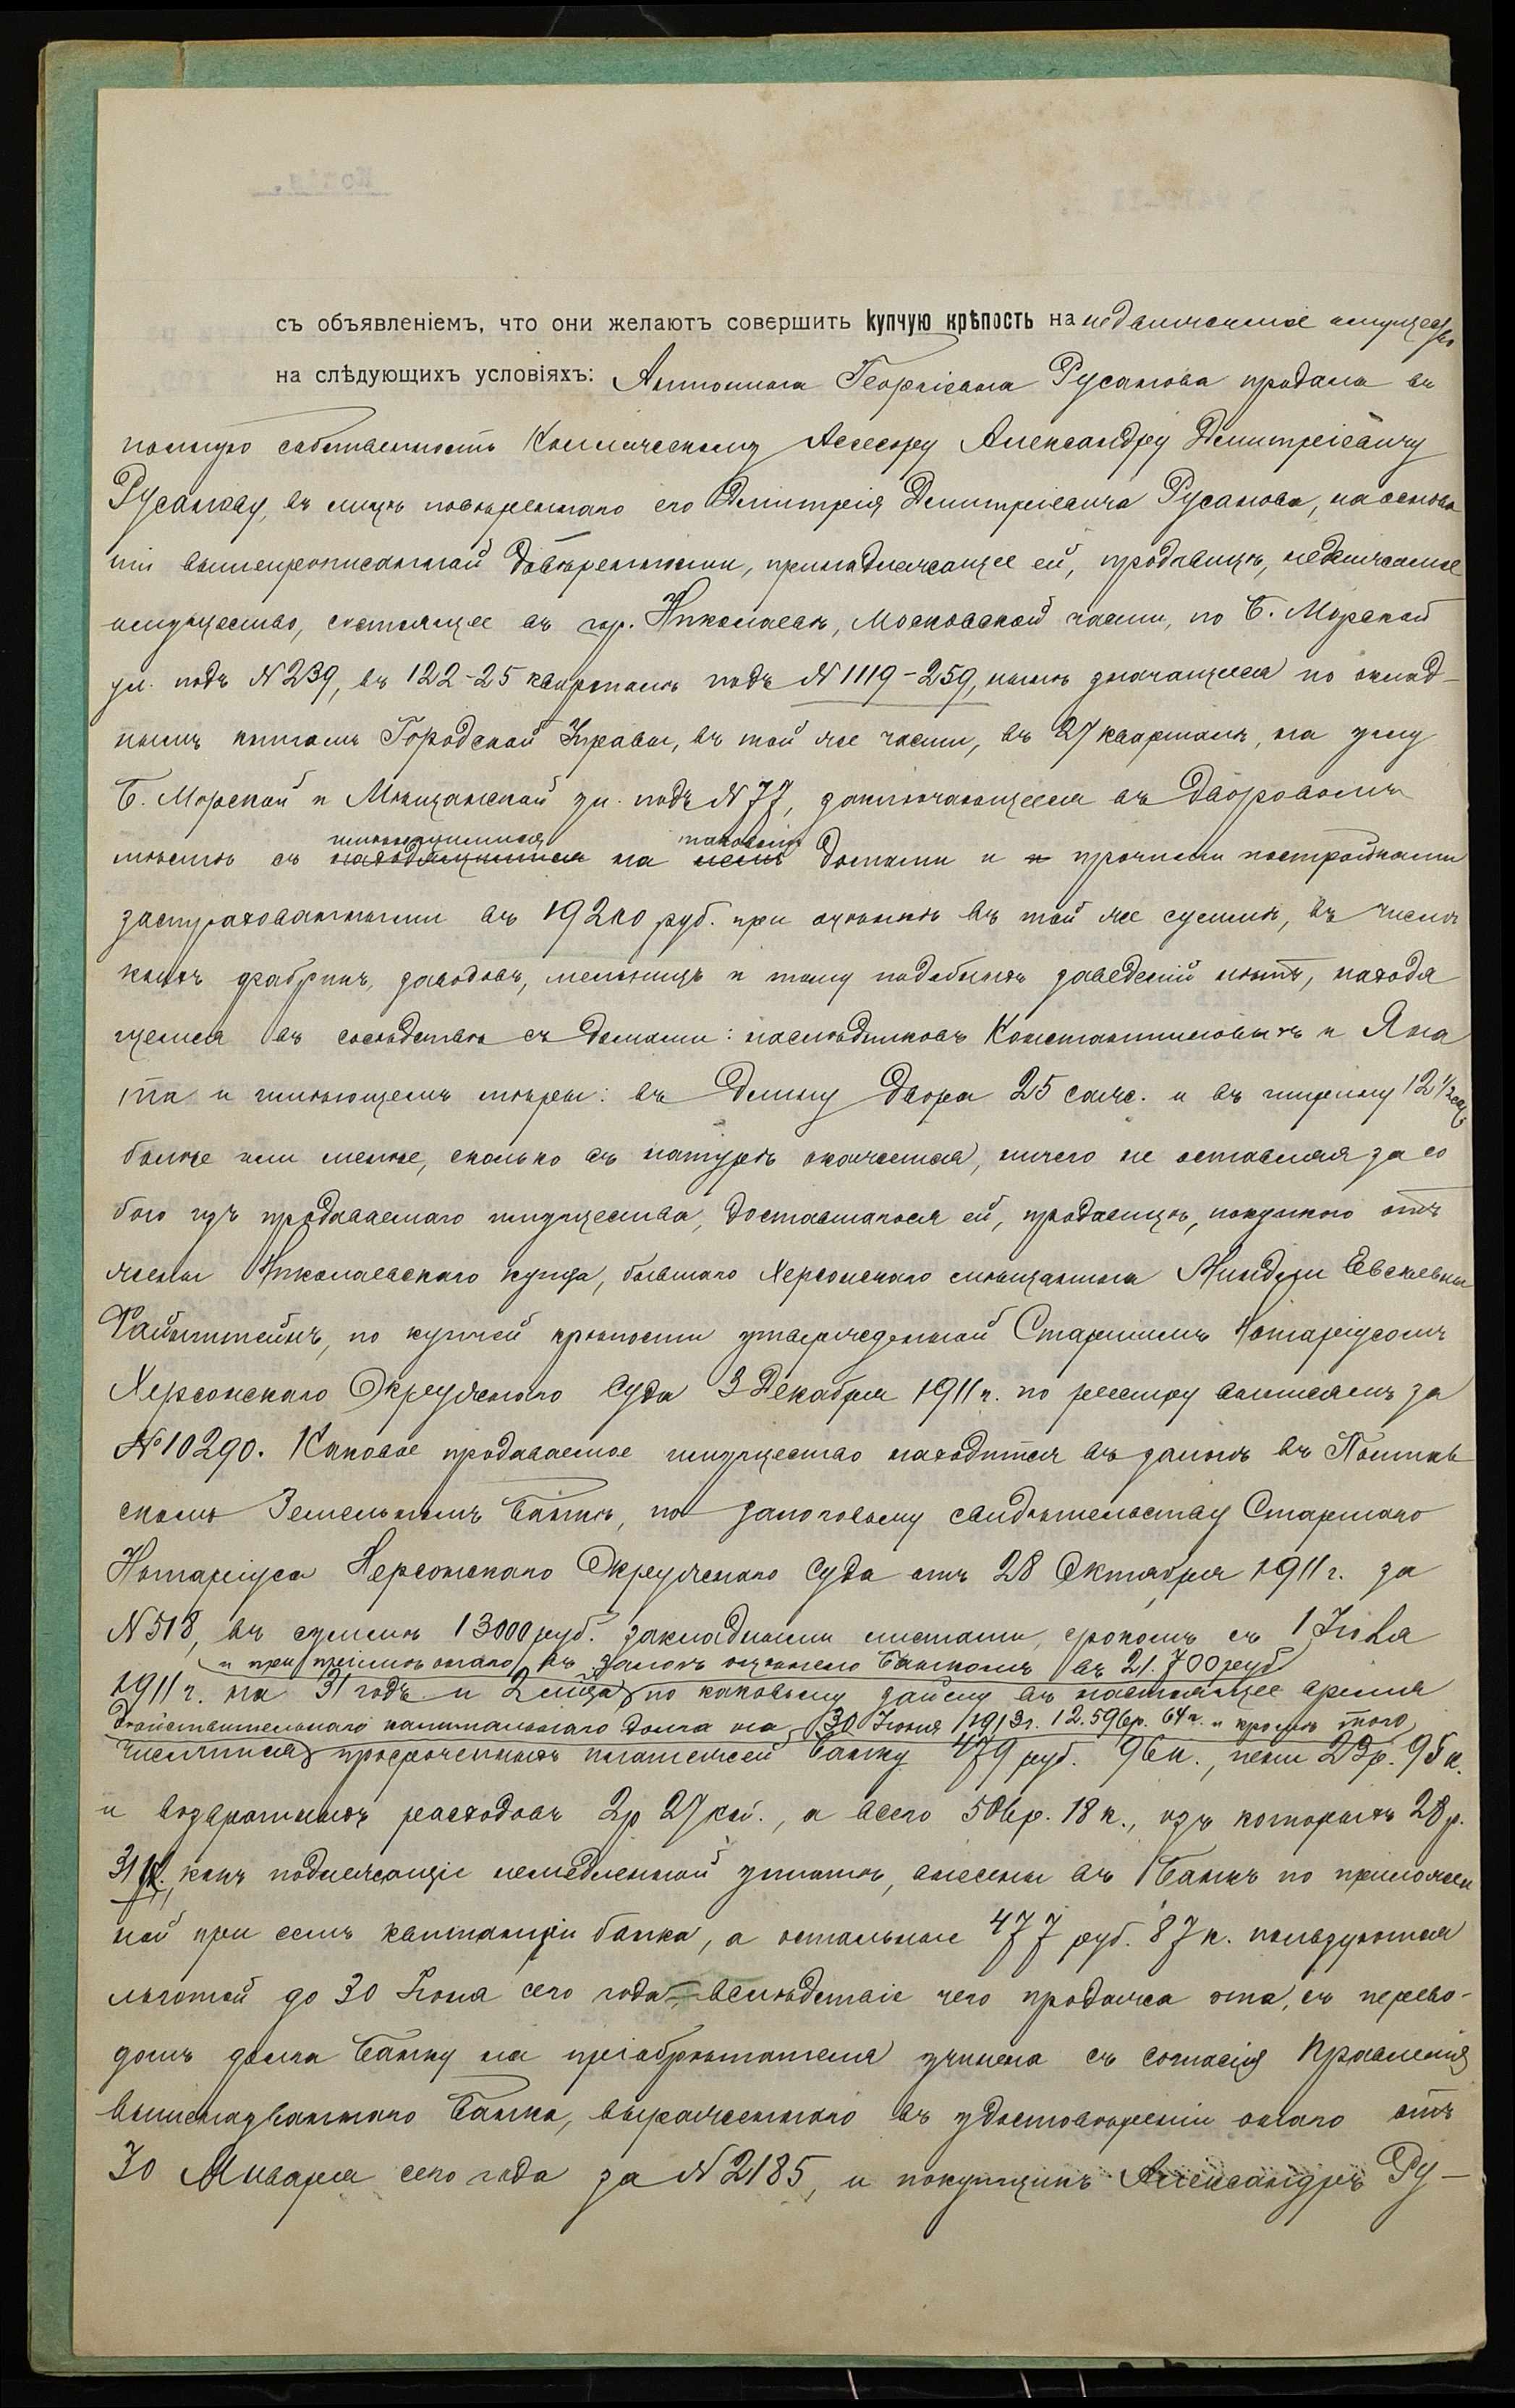 съ объявленіемъ, что они желаютъ совершить купчую крѣпость на недвижимое имущество
на слѣдующихъ условіяхъ: Антонина Георгіевна Русанова продала въ
полную собственность Коллежскому Асессору Александру Дмитріевичу
Русанову, въ лицѣ повѣреннаго его Дмитрія Дмитріевича Русанова, на основа
ніи вышепрописанной довѣренности, принадлежащее ей, продавицѣ, недвижимое
имущество, состоящее въ гор. Николаевѣ, Московской части, по Б. Морской
ул. подъ №239, въ 122-25 кварталѣ подъ №1119-259, нынѣ значащееся по оклад-
нымъ книгамъ Городской Управы, въ той же части, въ 27 кварталѣ, на углу
Б. Морской и Мѣщанской ул. подъ №77, заключающееся въ дворовомъ
имѣющимися таковомъ
мѣстѣ съ находящимися на немъ домами и и прочими постройками
застрахованными въ 19200 руб. при оцѣнкѣ въ той же суммѣ, въ числѣ
коихъ фабрикъ, заводовъ, мельницъ и тому подобныхъ заведеній нѣтъ, находя
щемся въ сосѣдствѣ съ домами: наслѣдниковъ Константиновыхъ и Яна
та и имѣющемъ мѣры: въ длину двора 25 саж. и въ ширину 12 1/2 саж.
болѣе или менѣе, сколько въ натурѣ окажется, ничего не оставляя за со
бою изъ продаваемаго имущества, доставшагося ей, продавицѣ, покупкою отъ
жены Николаевскаго купца, бывшаго Херсонскаго мѣщанина Миндли Евселевны
Файнштейнъ, по купчей крѣпости утвержденной Старшимъ Нотаріусомъ
Херсонскаго Окружнаго Суда 3 Декабря 1911 г. по реестру выписямъ за
№10290. Каковое продаваемое имущество находится въ залогѣ въ Полтав
скомъ Земельномъ Банкѣ, по залоговому свидѣтельству Старшаго
Нотаріуса Херсонскаго Окружнаго Суда отъ 28 Октября 1911 г. за
№518, въ суммѣ 13000 руб. закладными листами, срокомъ съ 1 Іюля
и при пріемѣ онаго въ залогъ оцѣнено Банкомъ въ 21.700 руб
1911 г. на 31 годъ и 2 мѣсяца по каковому займу въ настоящее время
дѣйствительнаго капитальнаго долга на 30 Іюня 1913 г. 12.596 р. 64 к. и кромѣ того
числится просроченныхъ платежей Банку 479 руб. 96 к., пени 23 р. 95 к.
и возвратныхъ расходовъ 2 р 27 коп., а всего 506 р. 18 к., изъ которыхъ 28 р.
31 к. какъ подлежащіе немедленной уплатѣ, внесены въ Банкъ по приложен
ной при семъ квитанціи банка, а остальные 477 руб. 87 к. пользуются
льготой до 30 Іюня сего года, вслѣдствіе чего продажа эта, съ перево-
домъ долга Банку на пріобрѣтателя учинена съ согласія Правленія
вышеназваннаго Банка, выраженнаго въ удостовѣреніи онаго отъ
30 Января сего года за №2185, и покупщикъ Александръ Ру-